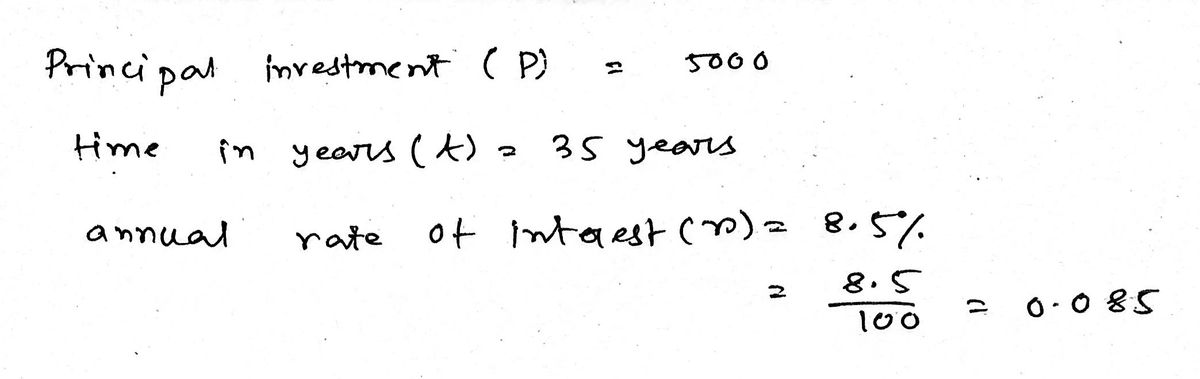 Principal investment (P) = 5000
time in years (t) = 35 years
annual rate of interest (r) = 8.5%
= 8.5/100 = 0.085